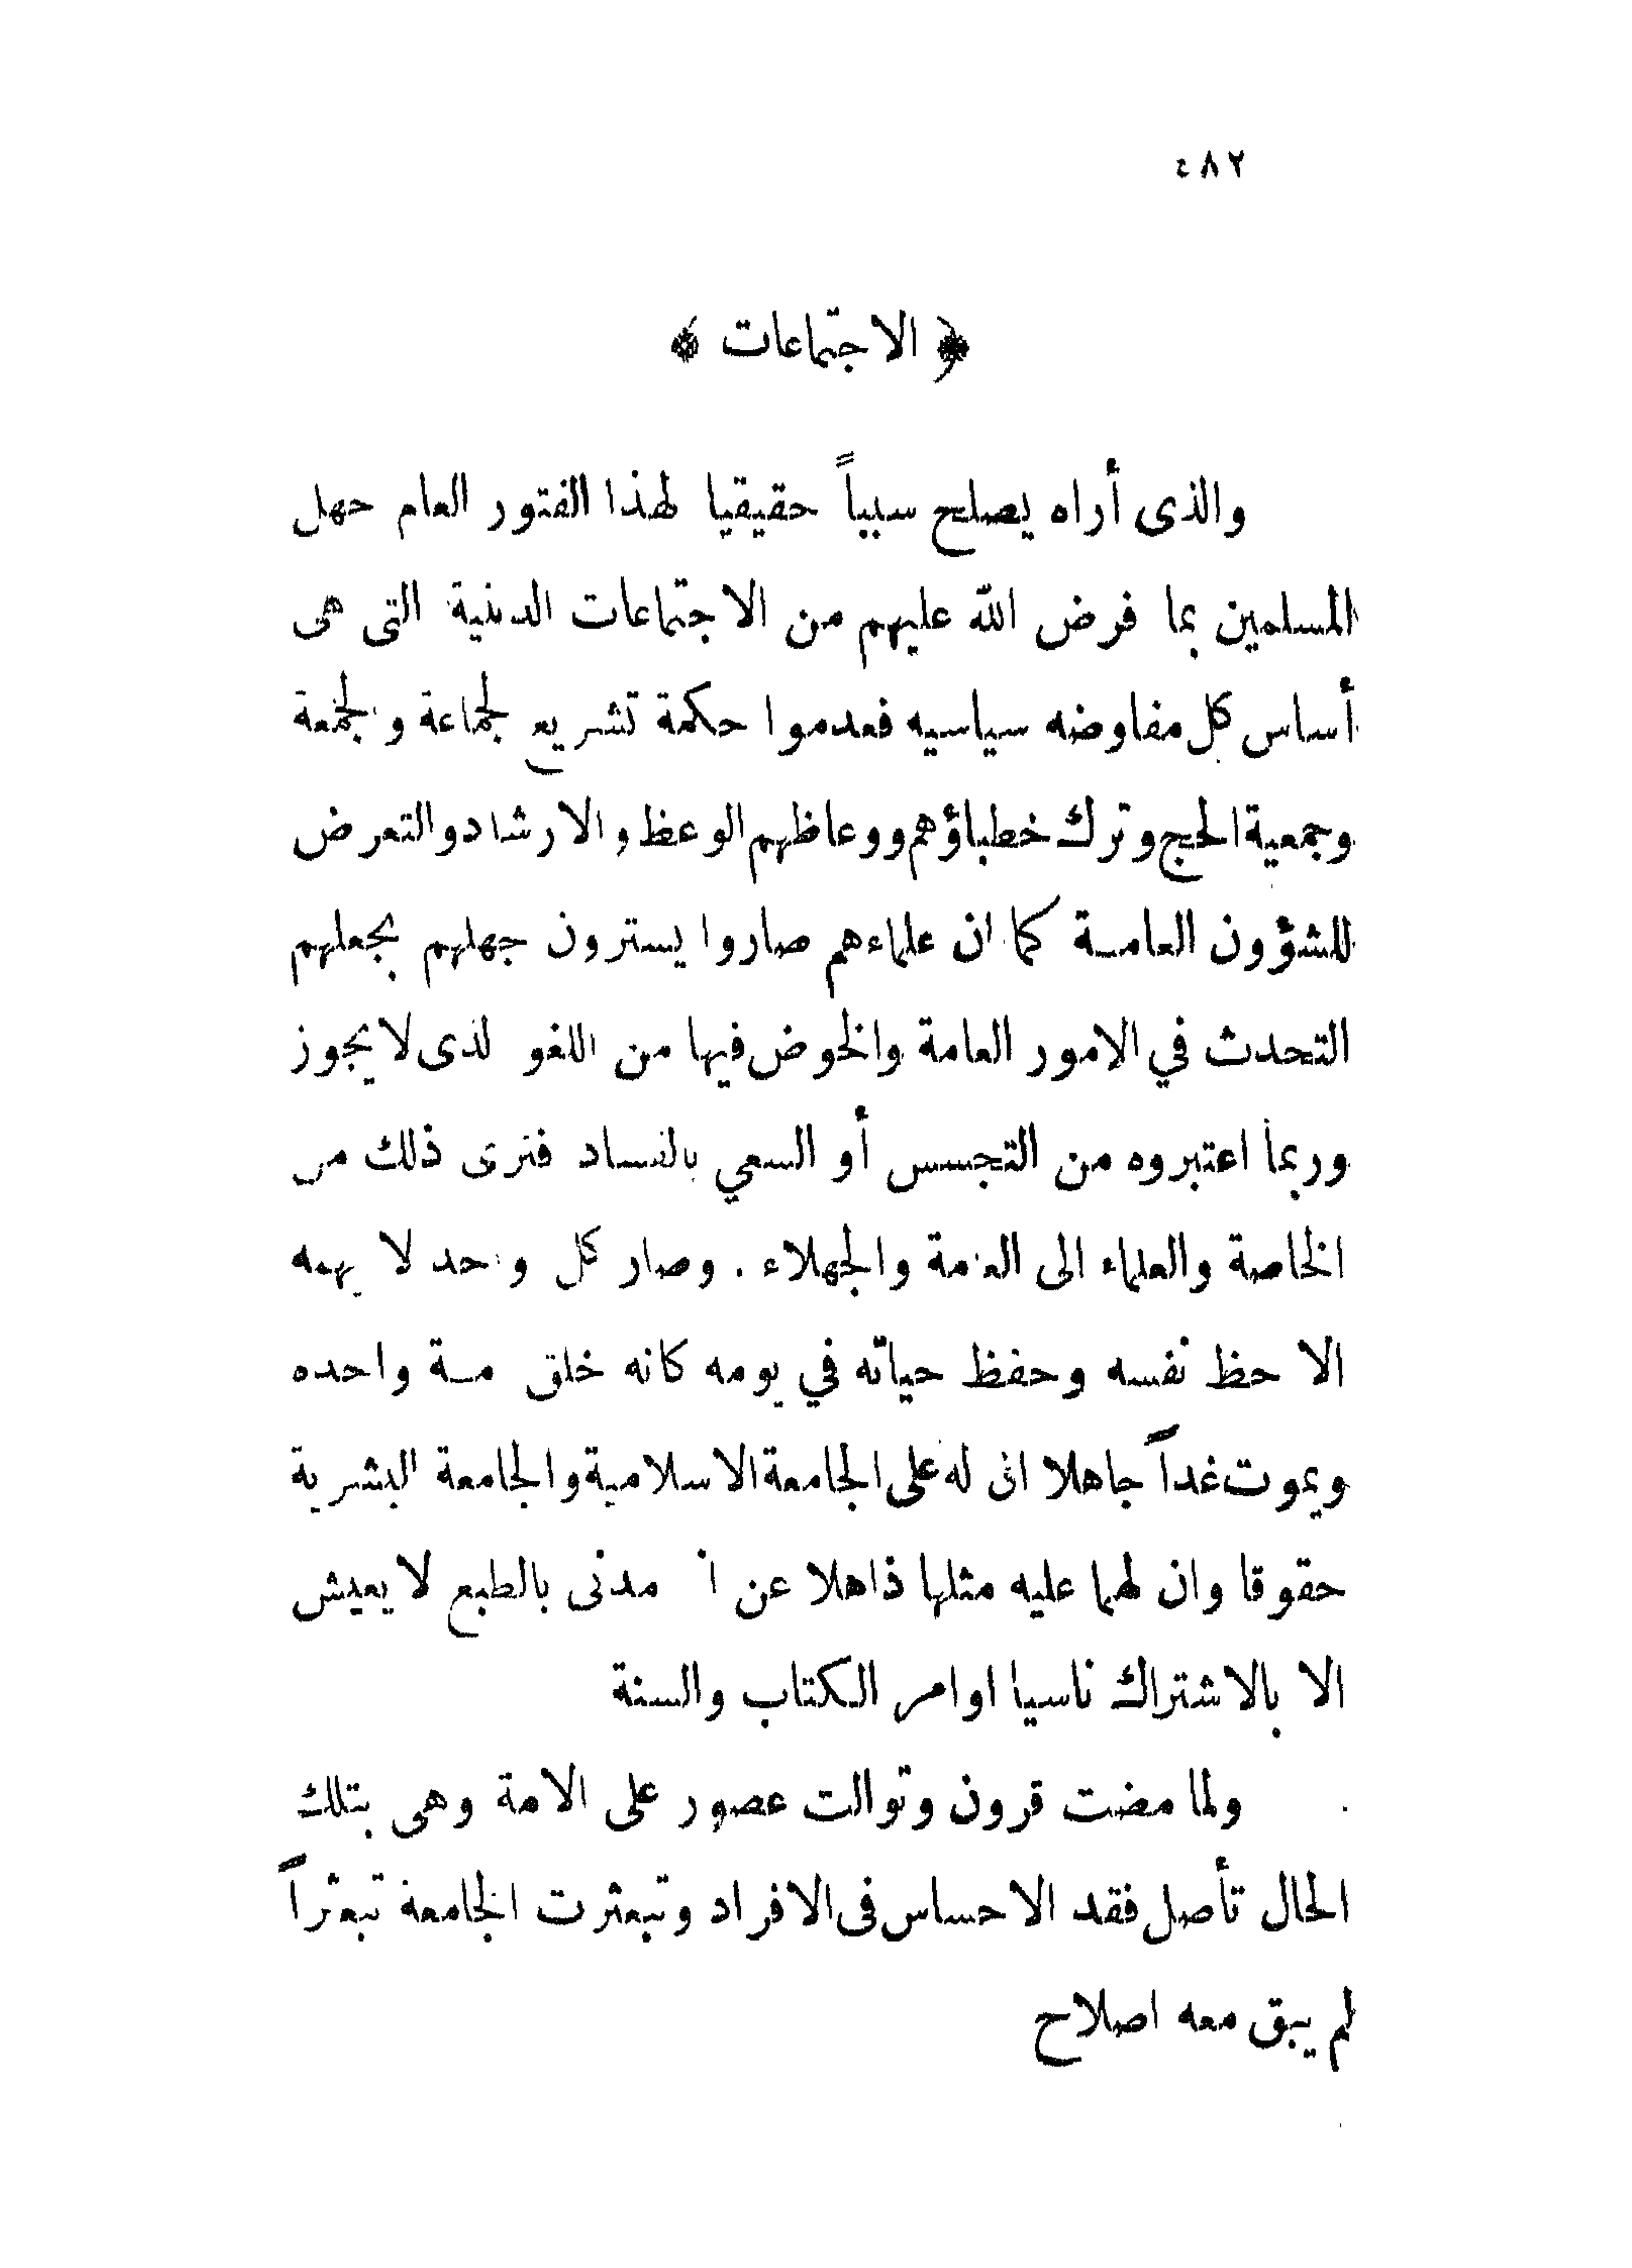 ٤٨٢
﴿ الاجتماعات ﴾
والذى أراه يصلح سبباً حقيقيا لهذا الفتور العام جهل
المسلمين بما فرض الله عليهم من الاجتماعات الدينية التى هى
أساس كل مفاوضه سياسيه فعدموا حكمة تشريع لجماعة والجمعة
وجمعية الحج وترك خطباؤهم ووعاظهم الوعظ والارشاد والتعرض
للشؤون العامة كما ان علماءهم صاروا يسترون جهلهم بجعلهم
التحدث في الامور العامة والخوض فيها من اللغو لذى لا يجوز
وربما اعتبروه من التجسس أو السعي بالفساد فترى ذلك من
الخاصة والعلماء الى العامة والجهلاء . وصار كل واحد لا يهمه
الا حظ نفسه وحفظ حياته في يومه كانه خلق مة واحده
ويموت غداً جاهلا ان له على الجامعة الاسلامية والجامعة البشرية
حقوقا وان لهما عليه مثلها ذاهلا عن مدنى بالطبع لا يعيش
الا بالاشتراك ناسيا اوامر الكتاب والسنة
ولما مضت قرون وتوالت عصور على الامة وهى بتلك
الحال تأصل فقد الاحساس فى الافراد وتبعثرت الجامعة تبعثراً
لم يبق معه اصلاح